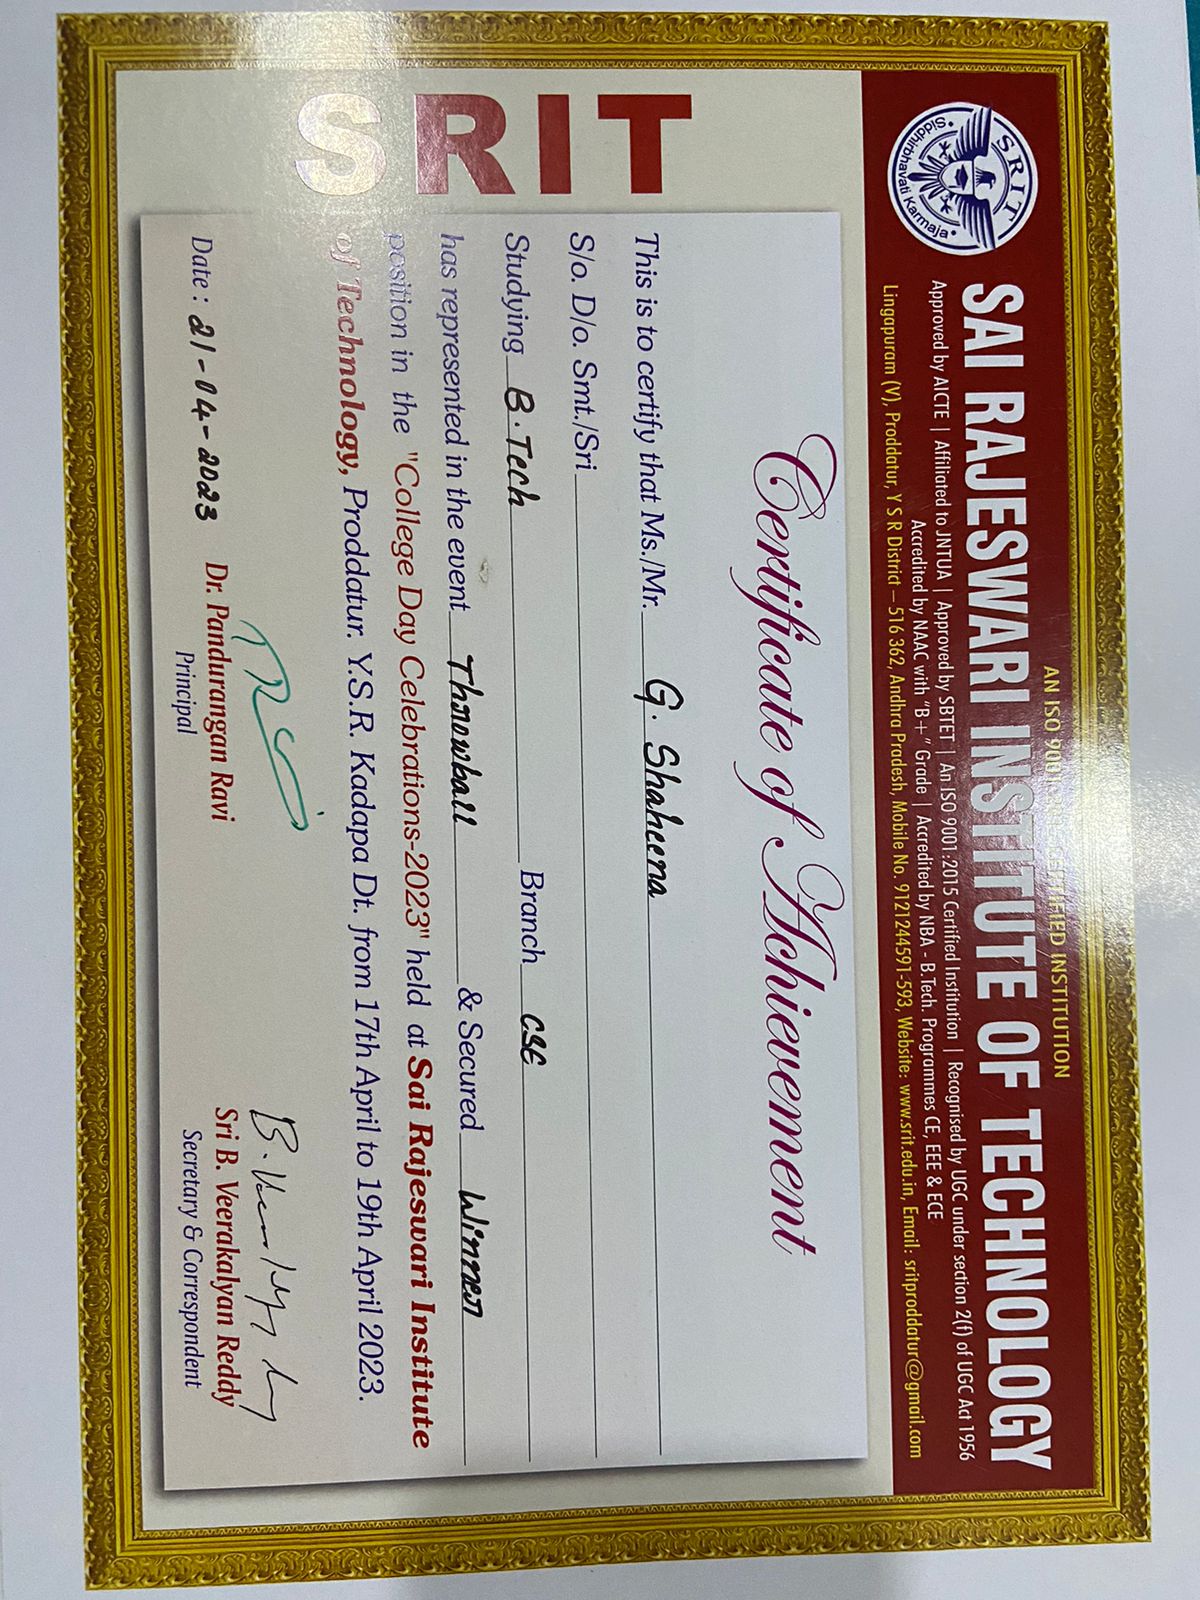 AN ISO 9001:2015 CERTIFIED INSTITUTION
SRIT
Siddhirbhavati Karmaja
SAI RAJESWARI INSTITUTE OF TECHNOLOGY
Approved by AICTE | Affiliated to JNTUA | Approved by SBTET | An ISO 9001:2015 Certified Institution | Recognised by UGC under section 2(f) of UGC Act 1956
Accredited by NAAC with "B+" Grade | Accredited by NBA - B.Tech. Programmes CE, EEE & ECE
Lingapuram (V), Proddatur, Y S R District – 516 362, Andhra Pradesh, Mobile No. 9121244591-593, Website: www.srit.edu.in, Email: sritproddatur@gmail.com
SRIT
Certificate of Achievement
This is to certify that Ms./Mr. G. Shaheena
S/o. D/o. Smt./Sri
Studying B.Tech Branch CSE
has represented in the event Throwball & Secured Winner
position in the "College Day Celebrations-2023" held at Sai Rajeswari Institute
of Technology, Proddatur. Y.S.R. Kadapa Dt. from 17th April to 19th April 2023.
Date : 21-04-2023
Dr. Pandurangan Ravi
Principal
Sri B. Veerakalyan Reddy
Secretary & Correspondent